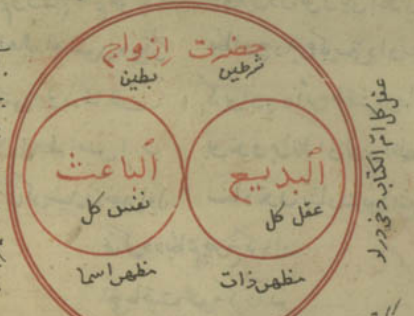 حضرت ازواج
شرطين
بطين
البديع
عقل كل
مظهر ذات
الباعث
نفس كل
مظهر اسما
عقل كل ام الكتاب دخى ديرلر